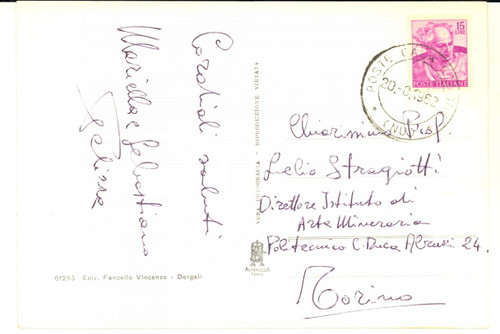 Cordiali saluti
Mariella e Sebastiano
VERA FOTOGRAFIA - RIPRODUZIONE VIETATA
61295 Ediz. Fancello Vincenzo - Dorgali
ALTEROCCA
TERNI
15
LIRE
POSTE ITALIANE
POSTE
20-8.1962
(NUORO)
Chiarissimo Prof.
Lelio Stragiotti
Direttore Istituto di
Arte Mineraria
Politecnico C. Duca Abruzzi 24.
Torino